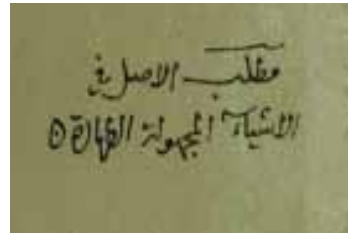 مطلب الاصل في
الاشياء المجهولة الطهارة